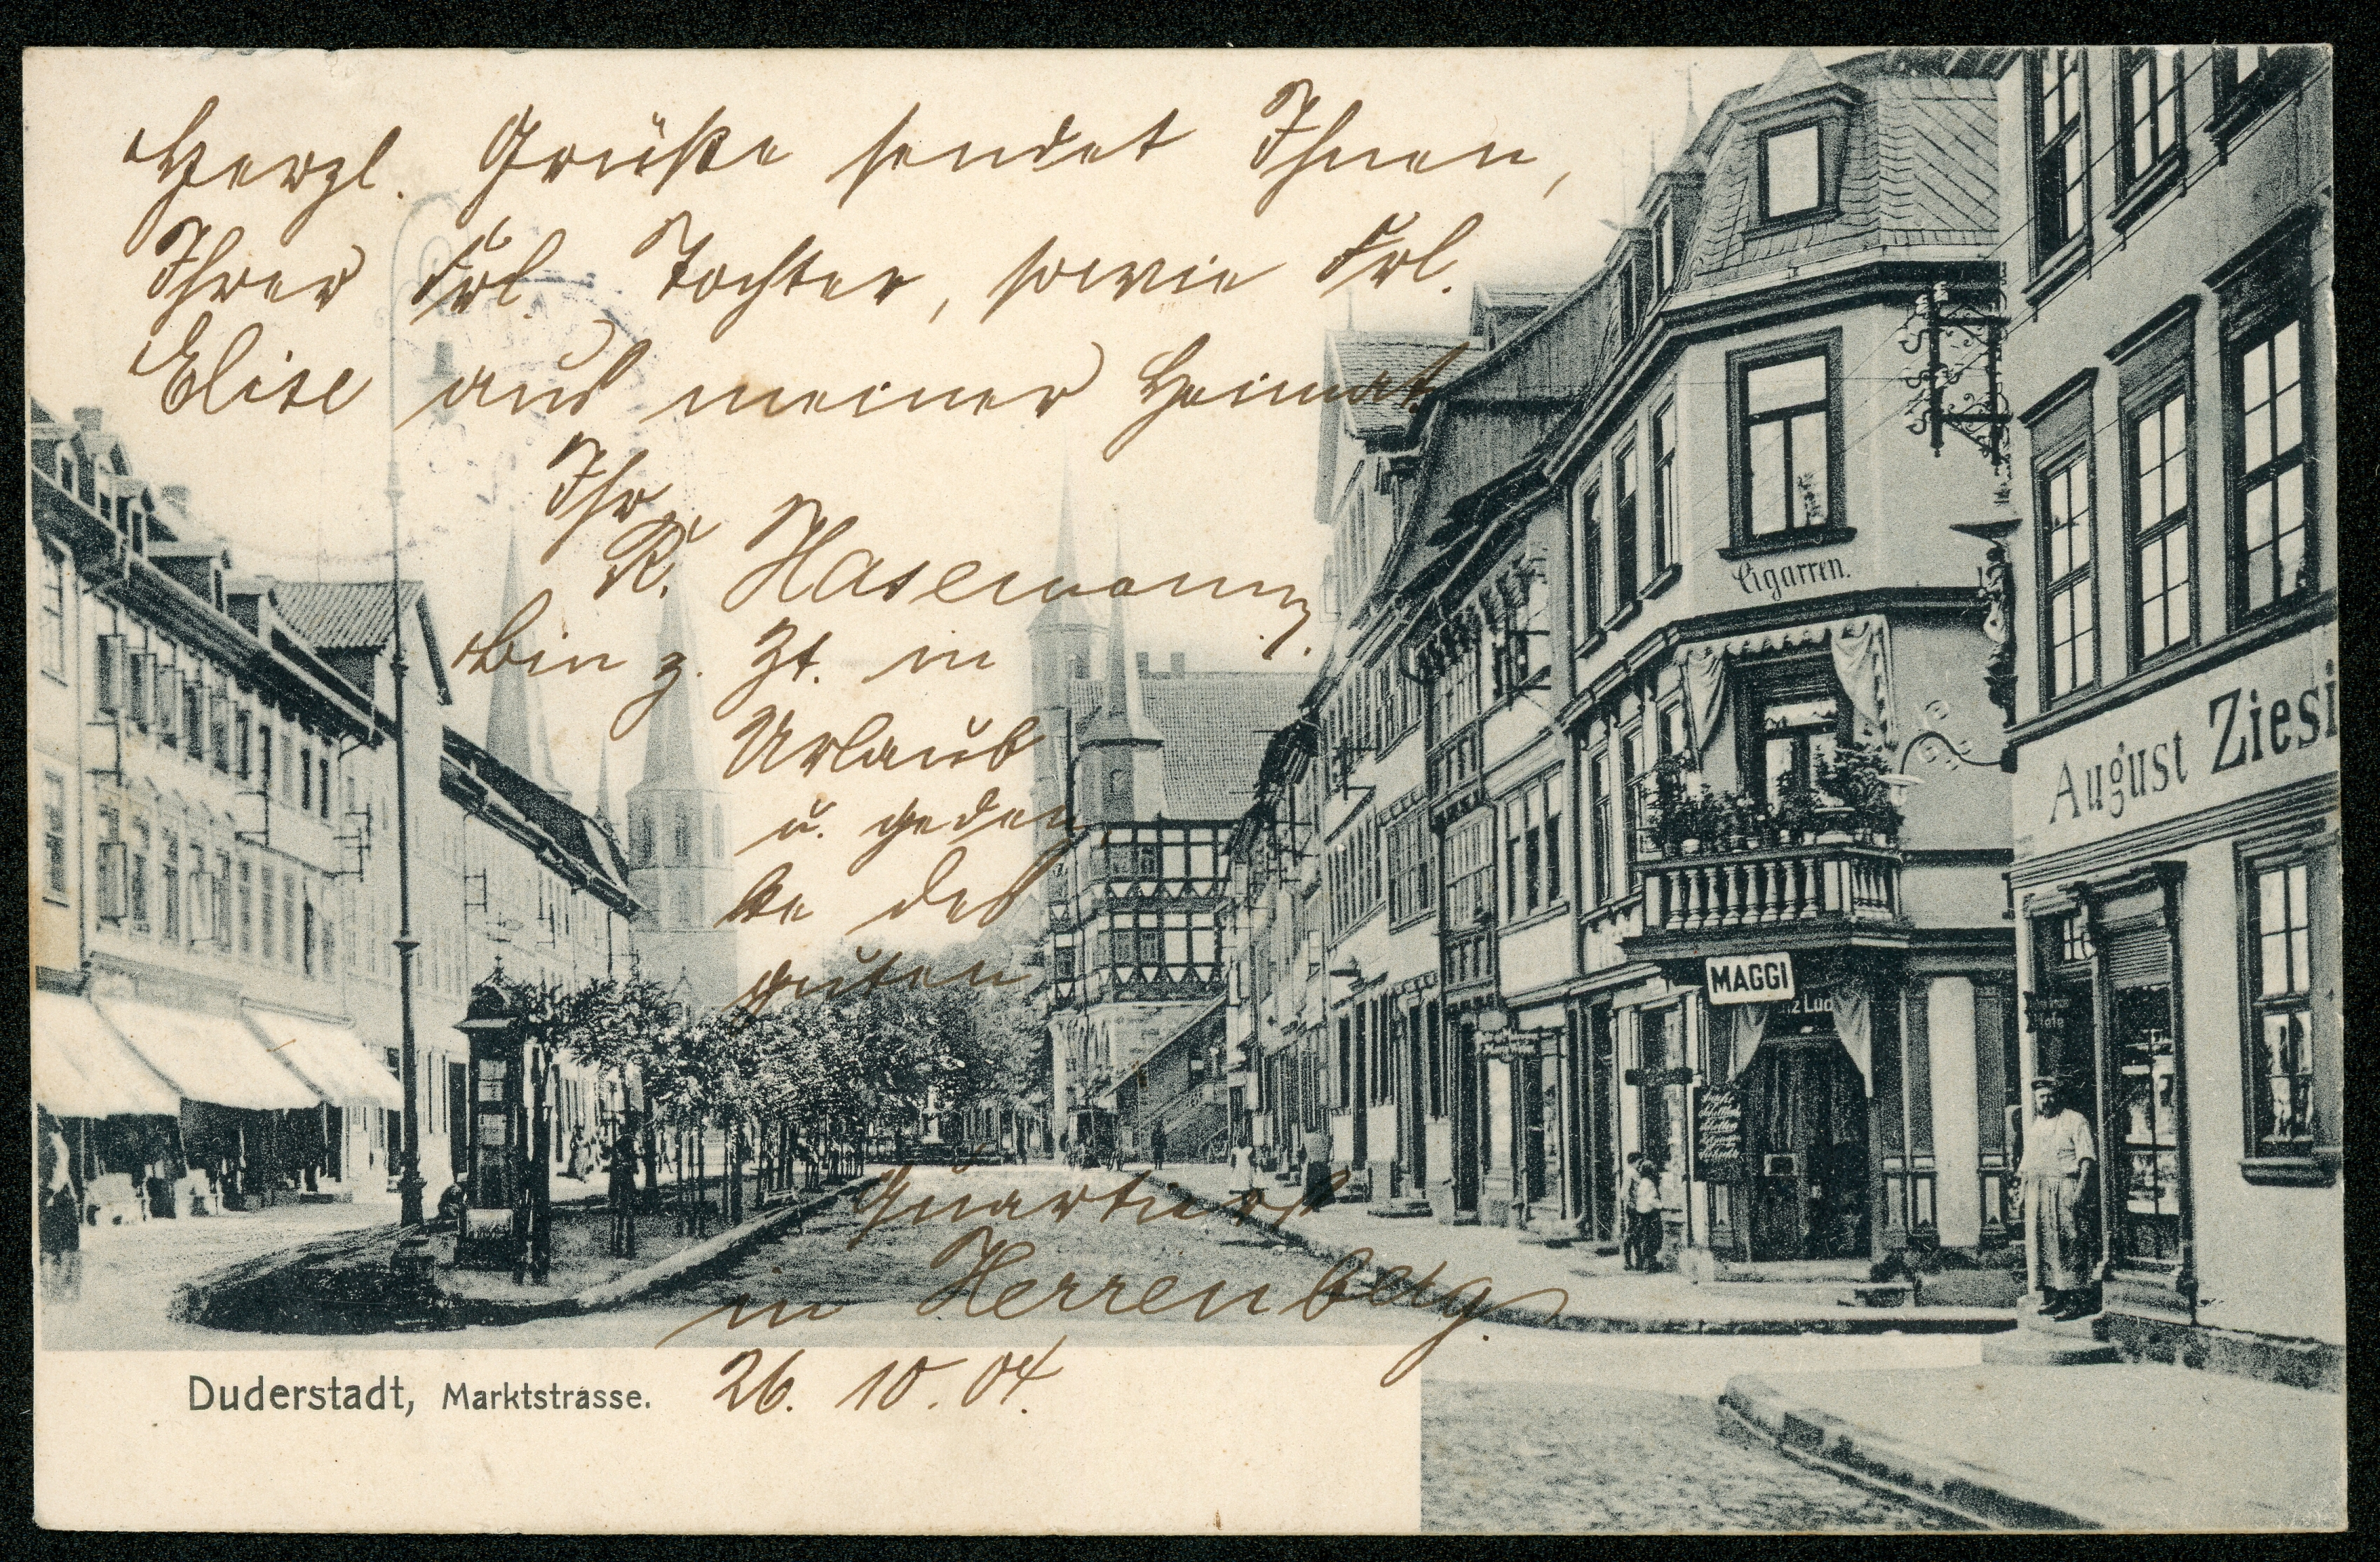 Herzl. Grüße sendet Ihnen,
Ihrer Frl. Tochter, sowie Frl.
Elise aus meiner Heimat
Ihr
R. Hasemann.
Bin z. Zt. in
Urlaub
u. geden,
ke des
guten
Quartiers
in Herrenberg.
26. 10. 04.
Duderstadt, Marktstrasse.
Cigarren.
August Ziesi
MAGGI